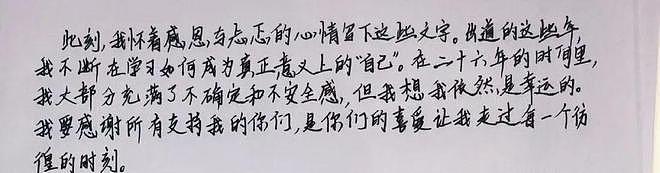 此刻,我怀着感恩与忐忑的心情留下这些文字。出道的这些年,
我不断在学习如何成为真正意义上的“自己”。在二十六年的时间里,
我大部分充满了不确定和不安全感,但我想我依然是幸运的。
我要感谢所有支持我的你们,是你们的喜爱让我走过每一个彷
徨的时刻。